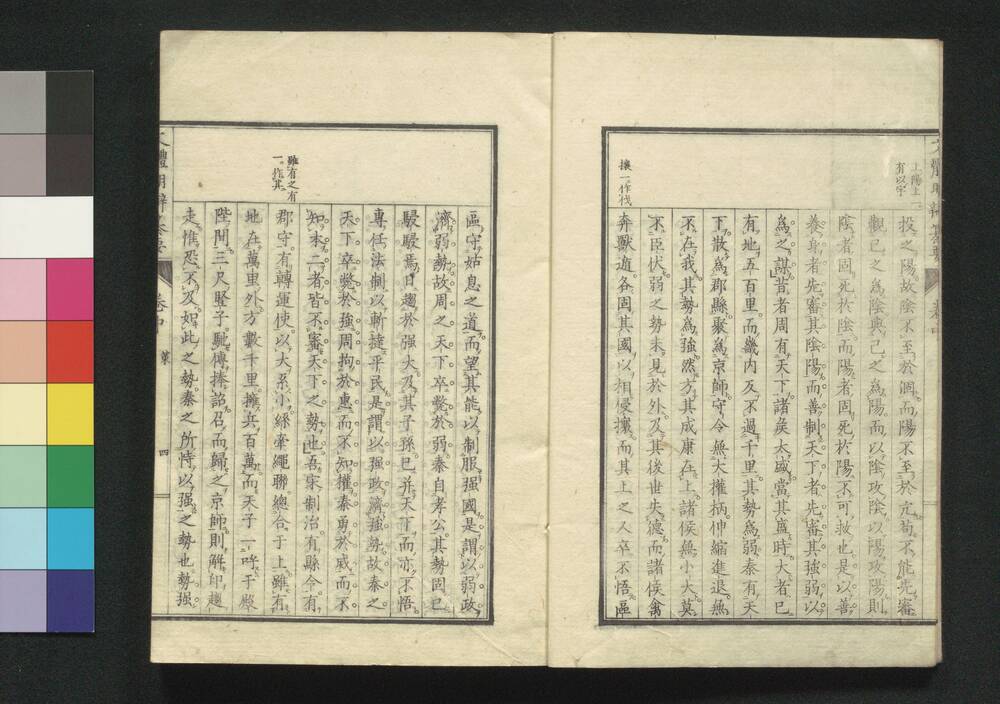 上陽上一
有以字
投之陽故陰不至於涸而陽不至於亢苟不能先審
觀已之爲陰與己之爲陽而以陰攻陰以陽攻陽則
陰者固死於陰而陽者固死於陽不可救也是以善
養身者先審其陰陽而善制天下者先審其強弱以
爲之謀昔者周有天下諸矦太盛當其盛時大者已
有地五百里而畿内反不過千里其勢爲弱秦有天
下散爲郡縣聚爲京師守令無大權柄伸縮進退無
不在我其勢爲強然方其成康在上諸侯無小大莫
不臣伏弱之勢未見於外及其後世失德而諸侯禽
攘一作伐
奔獸遁各固其國以相侵攘而其上之人卒不悟區
區守姑息之道而望其能以制服强國是謂以弱政
濟弱勢故周之天下卒斃於弱秦自孝公其勢固已
駸駸焉日趨於强大及其子孫已并天下而亦不悟
專任法制以斬撻平民是謂以强政濟强勢故秦之
天下卒斃於強周拘於惠而不知權秦勇於威而不
知本二者皆不審天下之勢也吾宋制治有縣令有
雖有之有
一作其
郡守有轉運使以大系小絲牽繩聯總合于上雖有
地在萬里外方數千里擁兵百萬而天子一呼于殿
陛間三尺豎子馳傳捧詔召而歸之京師則解印趨
走惟恐不及如此之勢秦之所恃以强之勢也勢强
文體明辨纂要 卷中 策 四